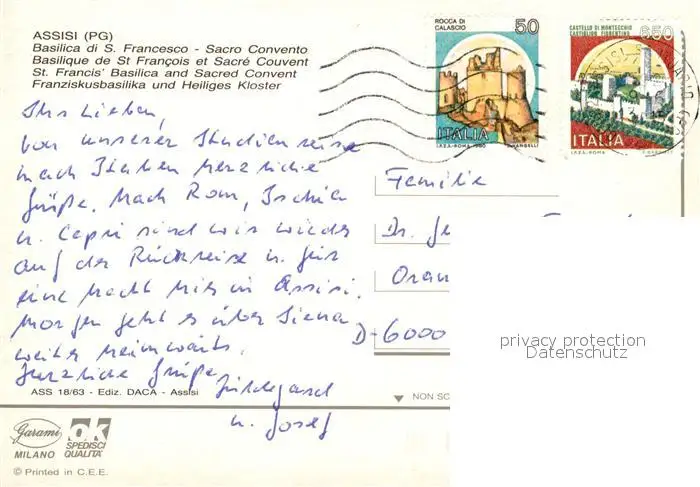 ASSISI (PG)
Basilica di S. Francesco - Sacro Convento
Basilique de St François et Sacré Couvent
St. Francis' Basilica and Sacred Convent
Franziskusbasilika und Heiliges Kloster
ROCCA DI
CALASCIO
50
ITALIA
I.P.Z.S.-ROMA-1980
CASTELLO DI MONTECCHIO
CASTIGLION FIORENTINO
650
ITALIA
I.P.Z.S.-ROMA
Ihr Lieben,
von unserer Studienreise
nach Italien herzliche
Grüße. Nach Rom, Ischia
u. Capri sind wir wieder
auf der Rückreise u. für
eine Nacht hier in Assisi.
Morgen geht es über Siena
weiter heimwärts.
Herzliche Grüße
Hildegard
u. Josef
Familie
Dr. Ge
Oran
D-6000
privacy protection
Datenschutz
ASS 18/63 - Ediz. DACA - Assisi
NON SC
Garami
MILANO
ok
SPEDISCI
QUALITA'
© Printed in C.E.E.